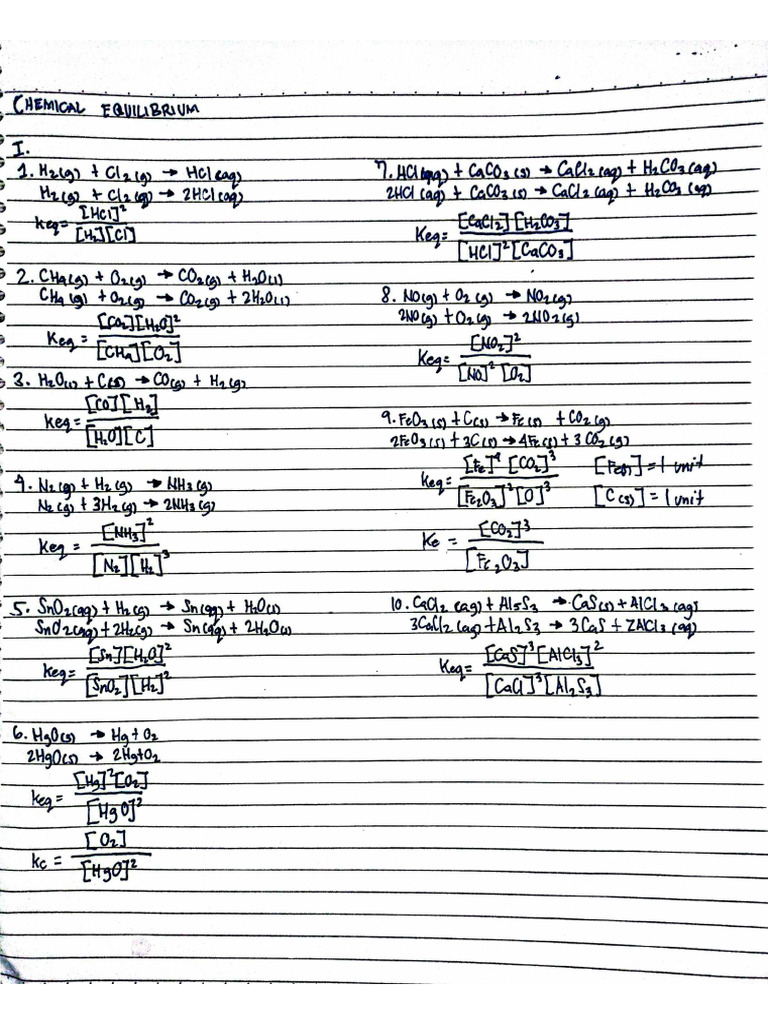 CHEMICAL EQUILIBRIUM
I.
1. H2(g) + Cl2(g) → HCl(aq)
H2(g) + Cl2(g) → 2HCl(aq)
Keq = [HCl]²
[H2][Cl]
2. CH4(g) + O2(g) → CO2(g) + H2O(l)
CH4(g) + O2(g) → CO2(g) + 2H2O(l)
Keq = [CO2][H2O]²
[CH4][O2]
3. H2O(l) + C(s) → CO(g) + H2(g)
Keq = [CO][H2]
[H2O][C]
4. N2(g) + H2(g) → NH3(g)
N2(g) + 3H2(g) → 2NH3(g)
Keq = [NH3]²
[N2][H2]³
5. SnO2(aq) + H2(g) → Sn(aq) + H2O(l)
SnO2(aq) + 2H2(g) → Sn(aq) + 2H2O(l)
Keq = [Sn][H2O]²
[SnO2][H2]²
6. HgO(s) → Hg + O2
2HgO(s) → 2Hg + O2
Keq = [Hg]²[O2]
[HgO]²
Kc = [O2]
[HgO]²
7. HCl(aq) + CaCO3(s) → CaCl2(aq) + H2CO3(aq)
2HCl(aq) + CaCO3(s) → CaCl2(aq) + H2CO3(aq)
Keq = [CaCl2][H2CO3]
[HCl]²[CaCO3]
8. NO(g) + O2(g) → NO2(g)
2NO(g) + O2(g) → 2NO2(g)
Keq = [NO2]²
[NO]²[O2]
9. FeO3(s) + C(s) → Fe(s) + CO2(g)
2FeO3(s) + 3C(s) → 4Fe(s) + 3CO2(g)
Keq = [Fe]⁴[CO2]³ [Fe(s)] = 1 unit
[Fe2O3]²[O]³ [C(s)] = 1 unit
Kc = [CO2]³
[Fe2O3]
10. CaCl2(aq) + Al2S3 → CaS(s) + AlCl3(aq)
3CaCl2(aq) + Al2S3 → 3CaS + 2AlCl3(aq)
Keq = [CaS]³[AlCl3]²
[CaCl]³[Al2S3]